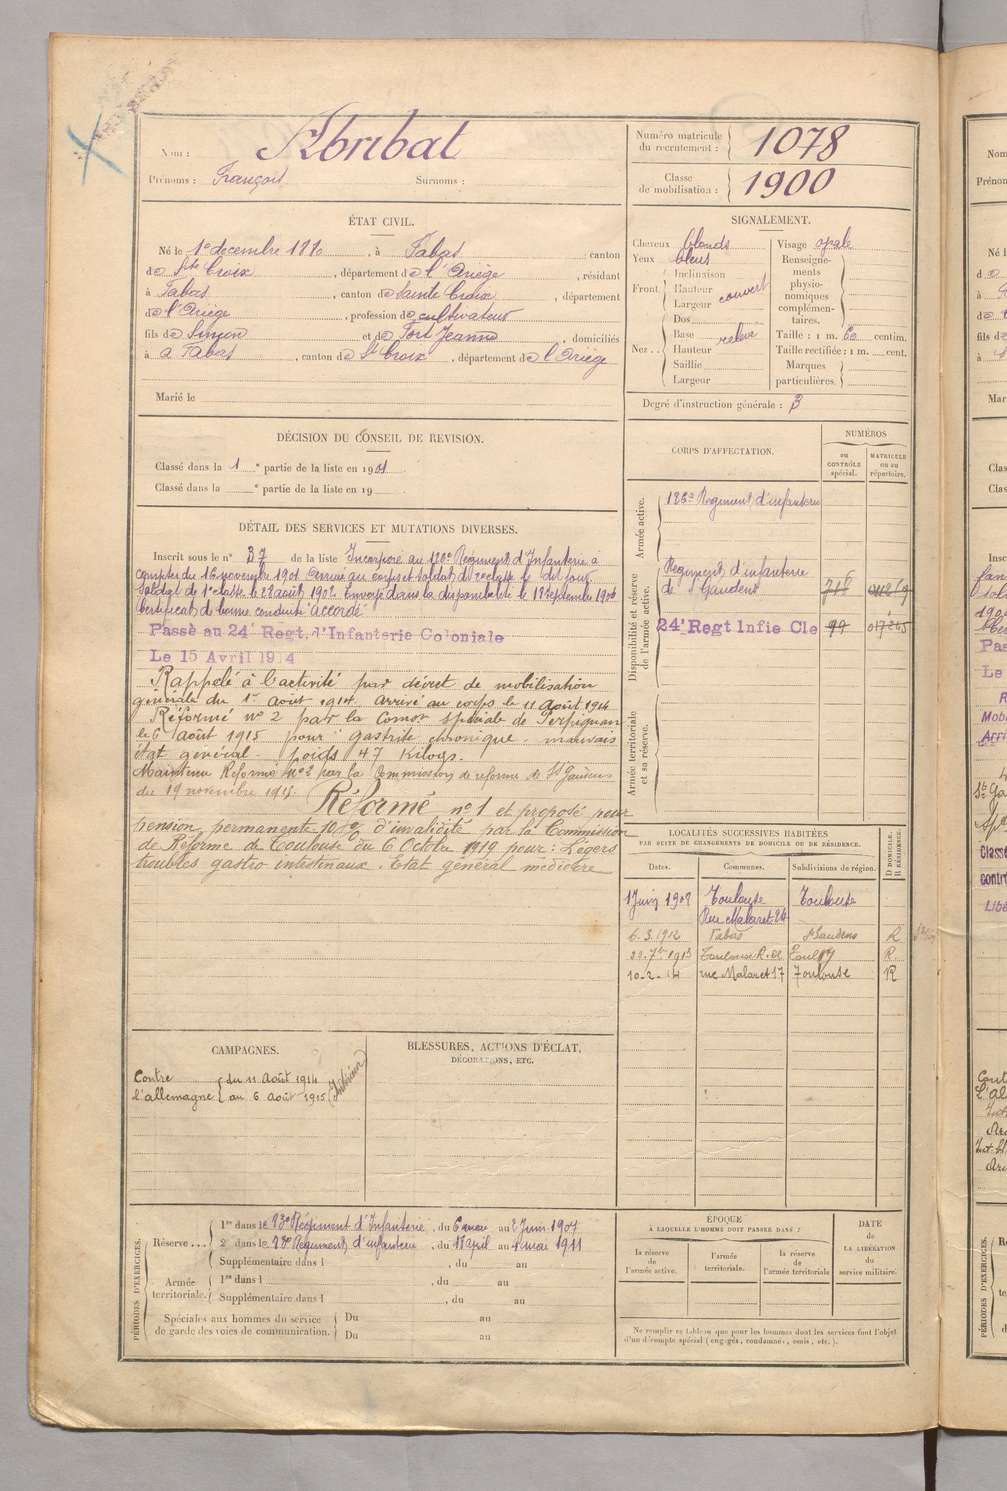 Nom : Abribat
Prénoms : François Surnoms :
Numéro matricule du recrutement : 1078
Classe de mobilisation : 1900
ÉTAT CIVIL.
Né le 1er decembre 1880, à Fabas canton
de Ste Croix, département de l'Ariège, résidant
à Fabas, canton de Sainte Croix, département
de l'Ariège, profession de cultivateur
fils de Simon et de Fort Jeanne, domiciliés
à à Fabas, canton de St Croix, département de l'Ariège
Marié le
SIGNALEMENT.
Cheveux blonds
Yeux bleus
Front. Inclinaison
Hauteur
Largeur couvert
Nez.. Dos
Base relevé
Hauteur
Saillie
Largeur
Visage ovale
Renseignements physionomiques complémentaires.
Taille : 1 m. 60 centim.
Taille rectifiée : 1 m. cent.
Marques particulières.
Degré d'instruction générale : 3
DÉCISION DU CONSEIL DE REVISION.
Classé dans la 1 e partie de la liste en 1901
Classé dans la e partie de la liste en 19
CORPS D'AFFECTATION.
NUMÉROS
au CONTRÔLE spécial.
MATRICULE ou au répertoire.
Armée active.
126e Régiment d'infanterie
Disponibilité et réserve de l'armée active.
Régiment d'infanterie
de St Gaudens
24e Regt Infie Cle 99
Armée territoriale et sa réserve.
DÉTAIL DES SERVICES ET MUTATIONS DIVERSES.
Inscrit sous le n° 37 de la liste Incorporé au 126e Régiment d'Infanterie à
compter du 16 novembre 1901 Arrivé au corps et soldat de 2e classe le dit jour.
Soldat de 1e classe le 22 août 1902. Envoyé dans la disponibilité le 18 septembre 1904
Certificat de bonne conduite "accordé"
Passé au 24e Regt. d'Infanterie Coloniale
Le 15 Avril 1914
Rappelé à l'activité par décret de mobilisation
générale du 1er août 1914 arrivé au corps le 11 août 1914
Réformé n° 2 par la Comon spéciale de Perpignan
le 6 août 1915 pour "gastrite chronique - mauvais
état général - poids 47 Kilogs.
Maintenu Réformé n° 2 par la Commission de réforme de St Gaudens
du 19 novembre 1915. Réformé n° 1 et proposé pour
pension permanente 10% d'invalidité par la Commission
de Réforme de Toulouse du 6 Octobre 1919 pour : Légers
troubles gastro intestinaux. Etat général médiocre
LOCALITÉS SUCCESSIVES HABITÉES
PAR SUITE DE CHANGEMENTS DE DOMICILE OU DE RÉSIDENCE.
Dates. Communes. Subdivisions de région. D DOMICILE. R RÉSIDENCE.
1 Juin 1908 Toulouse Toulouse
Rue Malaret 24
6.3.1912 Fabas St Gaudens R
22.7bre 1913 Toulouse R. de R.
10-2-14 rue Malaret 17 Toulouse R
CAMPAGNES.
Contre l'allemagne du 11 Août 1914
au 6 Août 1915 Intérieur
BLESSURES, ACTIONS D'ÉCLAT,
DÉCORATIONS, ETC.
PÉRIODES D'EXERCICES.
Réserve... 1re dans le 83e Régiment d'Infanterie, du 6 mai au 2 Juin 1907
2e dans le Régiment d'infanterie, du avril au 4 mai 1911
Supplémentaire dans l , du au
Armée territoriale. 1re dans l , du au
Supplémentaire dans l , du au
Spéciales aux hommes du service de garde des voies de communication. Du au
Du au
ÉPOQUE
À LAQUELLE L'HOMME DOIT PASSER DANS :
la réserve de l'armée active.
l'armée territoriale.
la réserve de l'armée territoriale
DATE de LA LIBÉRATION du service militaire.
Ne remplir ce tableau que pour les hommes dont les services font l'objet
d'un décompte spécial (engagés, condamnés, omis, etc.).